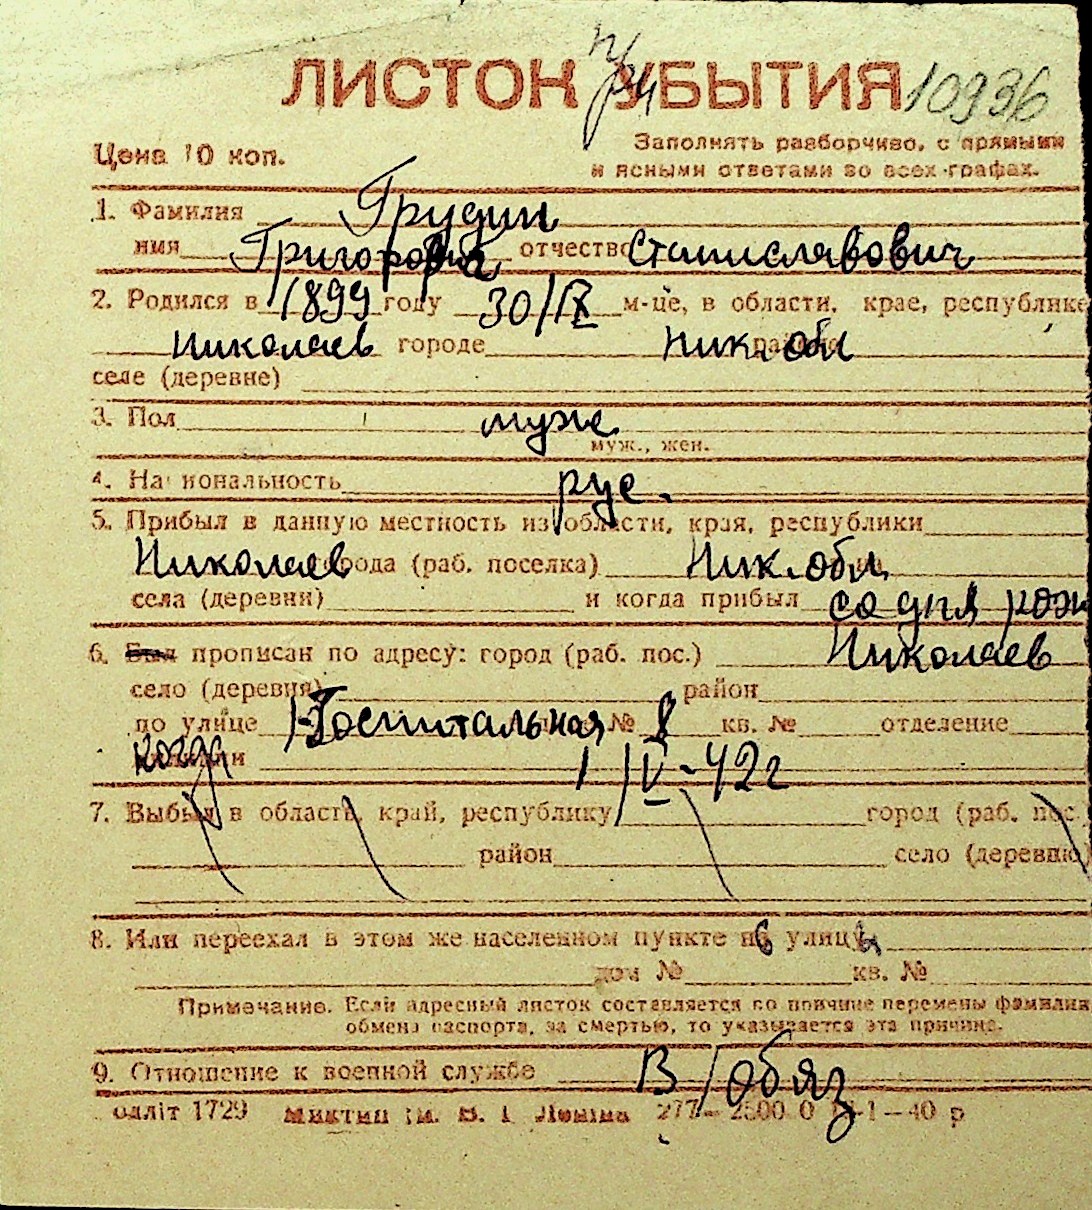 ЛИСТОК УБЫТИЯ 10936
Цена 10 коп.
Заполнять разборчиво, с прямыми
и ясными ответами во всех графах.
1. Фамилия Грудин
имя отчество Станиславович
2. Родился в 1899 году 30/IX м-це, в области, крае, республике
Николаев городе Ник. обл
селе (деревне)
3. Пол муж
муж., жен.
4. Национальность рус.
5. Прибыл в данную местность из области, края, республики
Николаев города (раб. поселка) Ник. обл.
села (деревни) и когда прибыл со дня рож
6. Был прописан по адресу: город (раб. пос.) Николаев
село (деревня) район
по улице Госпитальная № 8 кв. № отделение
когда 1/IV-42 г
7. Выбыл в область, край, республику город (раб. пос.)
район село (деревню)
8. Или переехал в этом же населенном пункте улицу
дом № кв. №
Примечание. Если адресный листок составляется по причине перемены фамилии
обмена паспорта, за смертью, то указывается эта причина.
9. Отношение к военной службе В/обяз
одліт 1729 ім. В. І. Леніна 277–2500 0 1–40 р